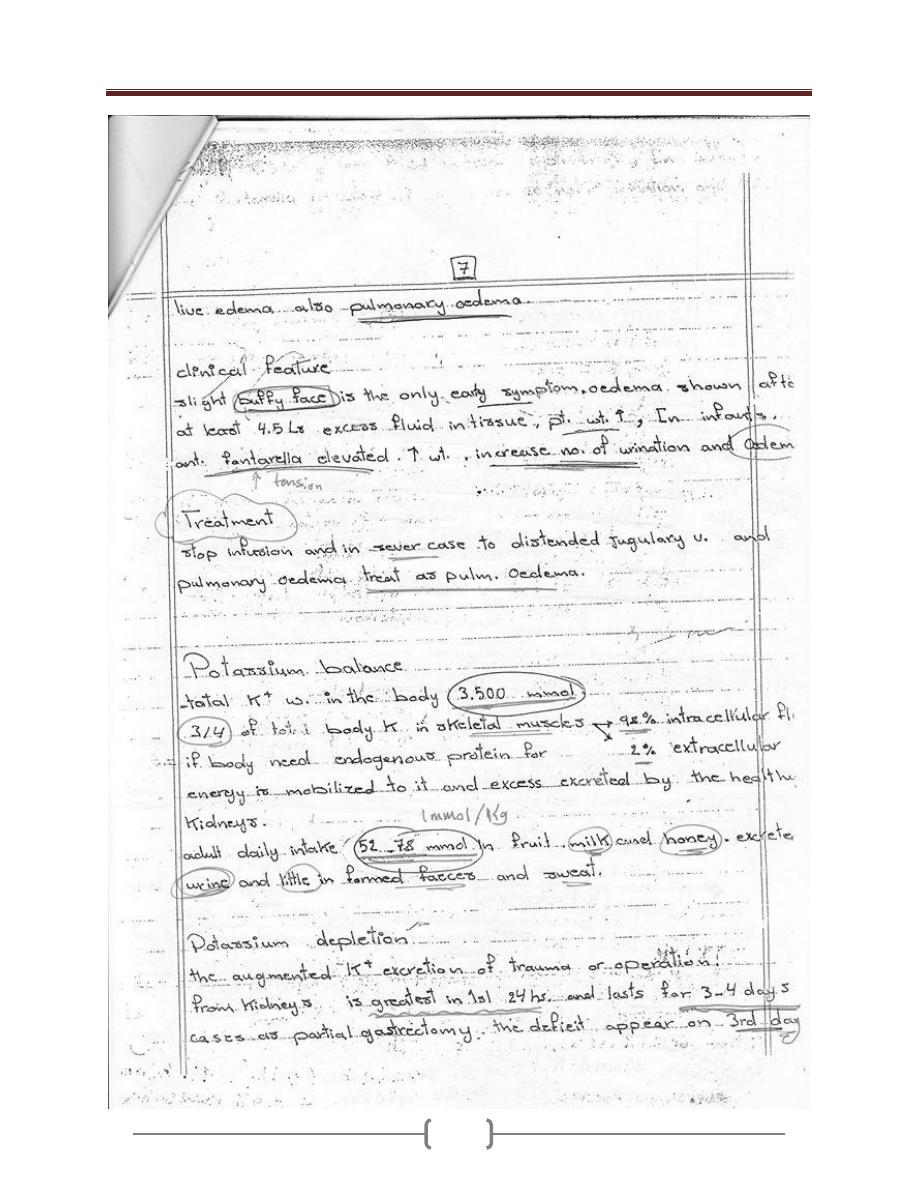 7
live edema also pulmonary oedema
clinical feature
slight puffy face is the only early symptom. oedema shown afte
at least 4.5 Ls excess fluid in tissue, pt. wt. ↑, In infants.
ant. fontarella elevated. ↑ wt. , increase no. of urination and Oedem
↑ tension
Treatment
stop infusion and in sever case to distended jugulary v. and
pulmonary oedema treat as pulm. Oedema.
Potassium balance
total K+ w. in the body 3.500 mmol.
3/4 of total body K in skeletal muscles → 98% intracellular fl
if body need endogenous protein for 2% extracellular
energy is mobilized to it and excess excreted by the healthy
Kidneys.
1mmol/Kg
adult daily intake 52-78 mmol in fruit, milk and honey. excrete
urine and little in formed faeces and sweat.
Potassium depletion
the augmented K+ excretion of trauma or operation.
from Kidneys is greatest in 1st 24 hs. and lasts for 3-4 days
cases as partial gastrectomy. the deficit appear on 3rd day